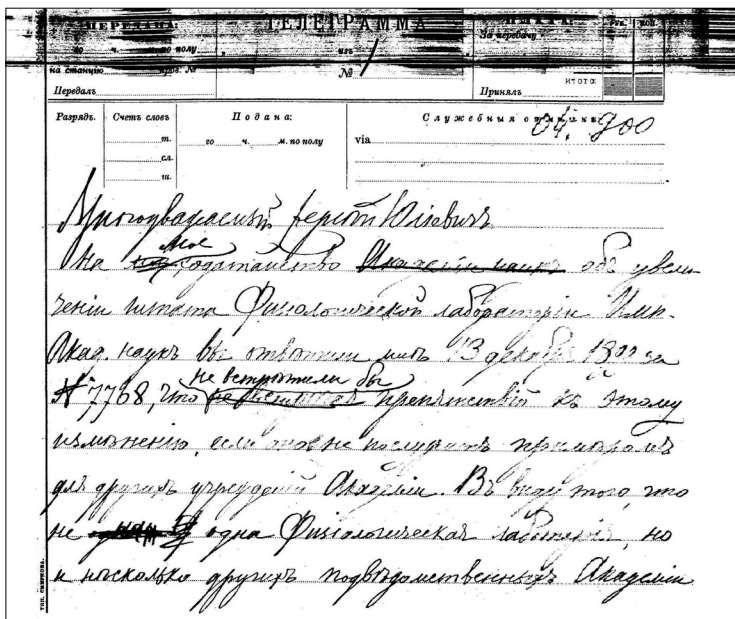 ПЕРЕДАНА:
ТЕЛЕГРАММА
ПЛАТА:
РУБ. КОП.
го ч. м. по полу
изъ
За передачу
на станцію пров. №
№ 1
ИТОГО:
Передалъ
Принялъ
Разрядъ.
Счетъ словъ
Подана:
Служебныя отмѣтки:
04. 900
т.
го ч. м. по полу
via
сл.
ш.
Многоуважаемый Сергѣй Юліевичъ
мое
На ходатайство Академіи наукъ объ увели-
ченіи штата Физіологической лабораторіи Имп.
Акад. наукъ Вы отвѣтили мнѣ 13 декабря 1899 за
не встрѣтили бы
№ 7768, что не препятствій къ этому
измѣненію, если оное не послужитъ примѣромъ
для другихъ учрежденій Академіи. Въ виду того, что
не одна Физіологическая лабораторія, но
и нѣсколько другихъ подвѣдомственныхъ Академіи
ТИП. СМИРНОВА.